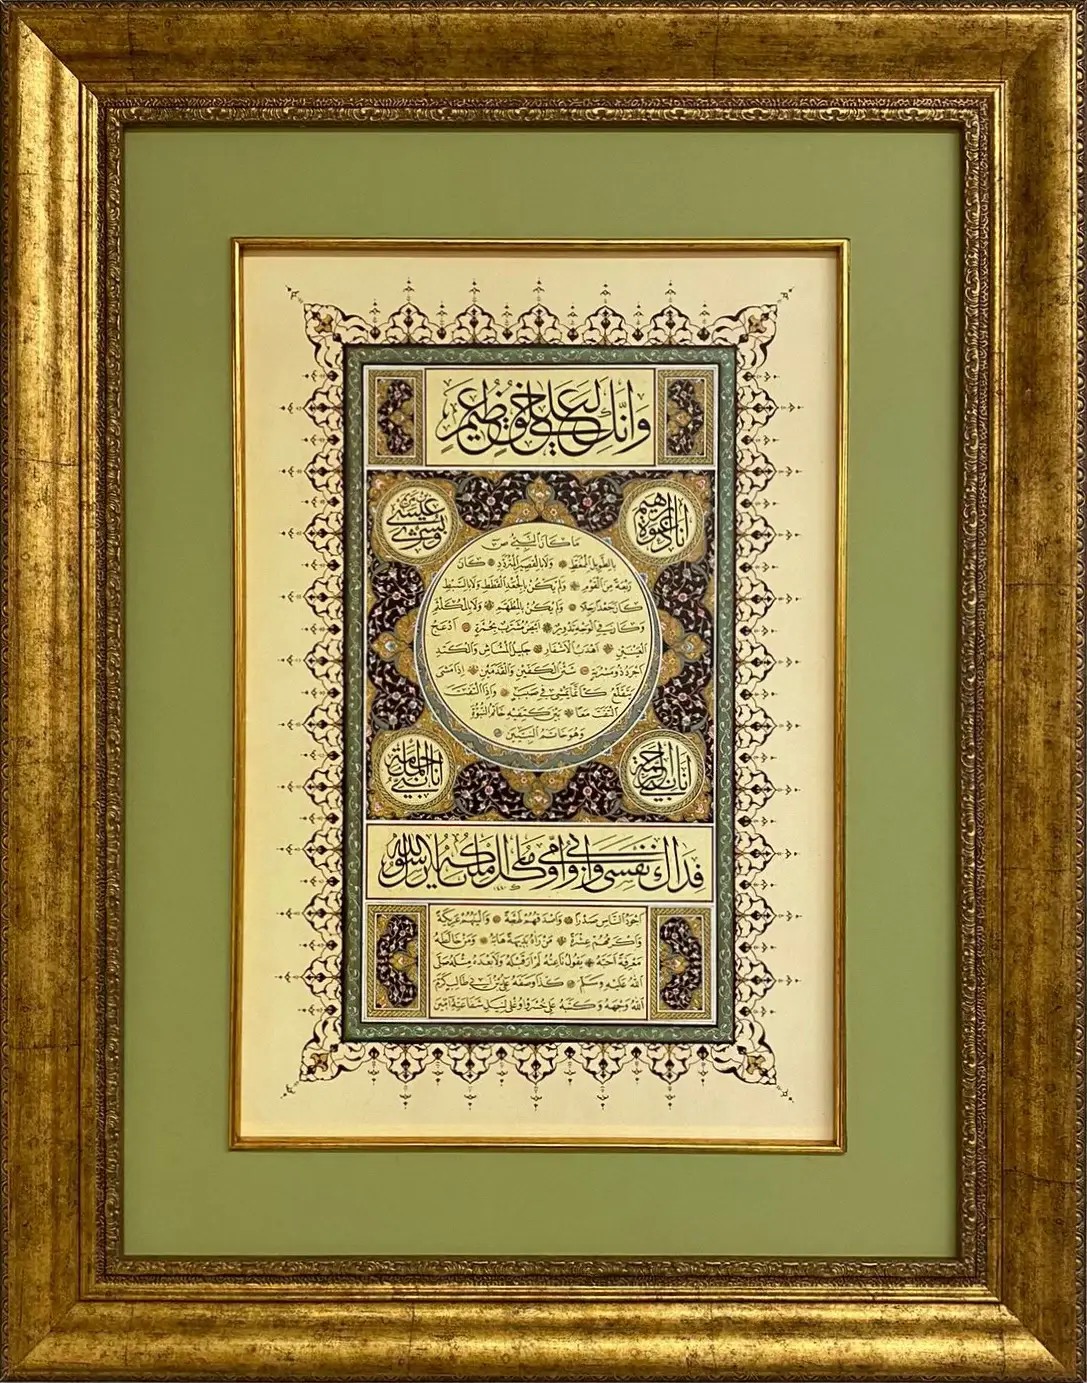 وَإِنَّكَ لَعَلَىٰ خُلُقٍ عَظِيمٍ
أنا دعوة إبراهيم
وبشرى عيسى
ما كان النبي ص
بالطويل الممغط ولا بالقصير المتردد كان
ربعة من القوم ولم يكن بالجعد القطط ولا بالسبط
كان جعدا رجلا ولم يكن بالمطهم ولا بالمكلثم
وكان في الوجه تدوير ابيض مشرب بحمرة أدعج
العينين أهدب الأشفار جليل المشاش والكتد
أجرد ذو مسربة شثن الكفين والقدمين إذا مشى
يتقلع كأنما يمشي في صبب وإذا التفت
التفت معا بين كتفيه خاتم النبوة
وهو خاتم النبيين
أنا نبي الرحمة
أنا نبي الملحمة
فداك نفسي وأبي وأمي وكل ما أملكه يا رسول الله
أجود الناس صدرا وأصدقهم لهجة وألينهم عريكة
وأكرمهم عشرة من رآه بديهة هابه ومن خالطه
معرفة أحبه يقول ناعته لم أر قبله ولا بعده مثله صلى
الله عليه وسلم كذا وصفه علي بن أبي طالب كرم
الله وجهه وكتبه علي